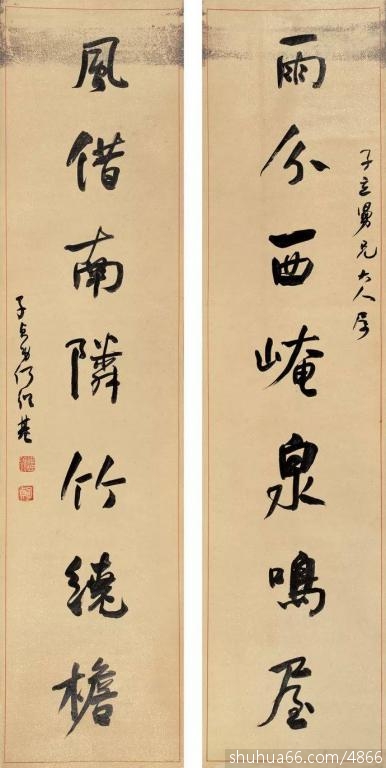 子立舅兄大人屬
雨分西崦泉鳴屋
風借南隣竹繞檐
子貞弟何紹基
shuhua66.com/4866